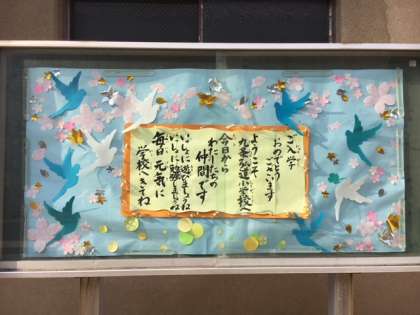 ご入学
おめでとうございます
ようこそ
九条弘道小学校へ
今日から
わたしたちの
仲間です
いっしょに遊びましょうね
いっしょに勉強しましょうね
毎日元気に
学校へきてね